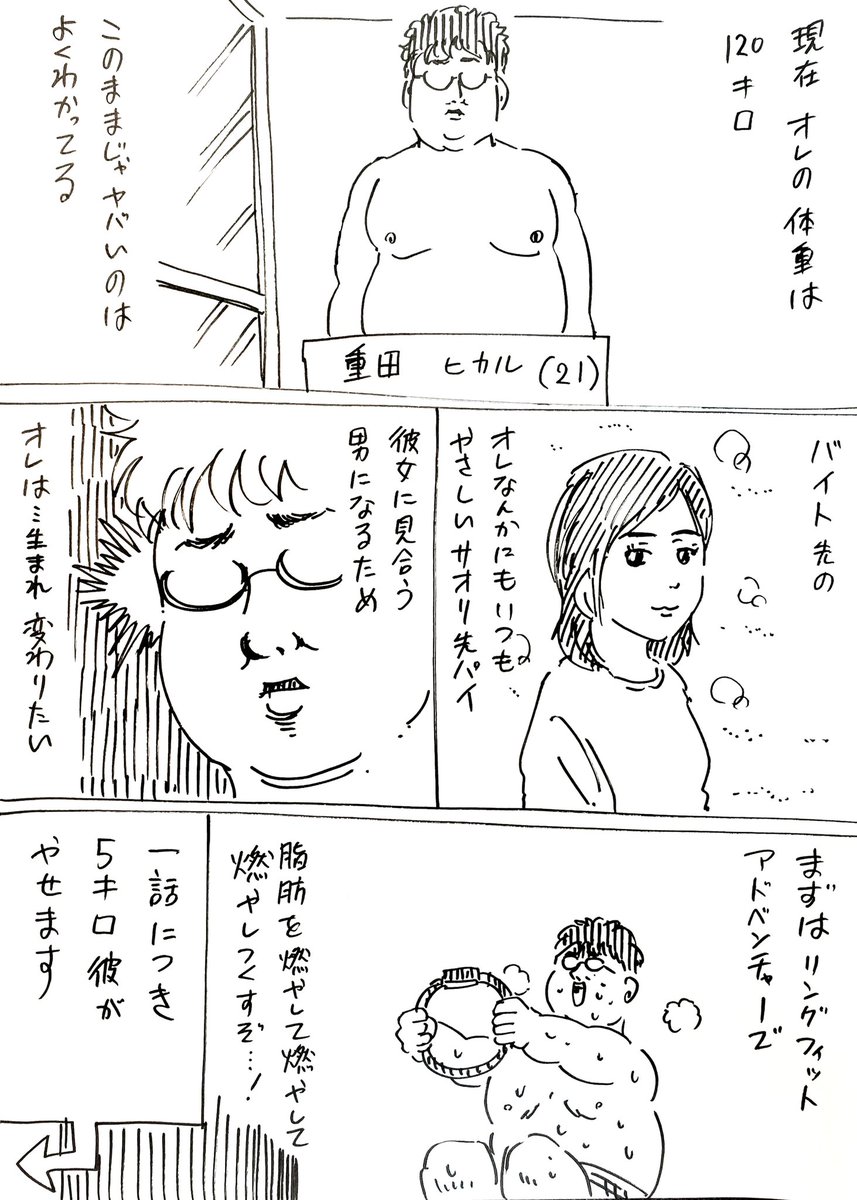 現在 オレの 体重は
120キロ
このままじゃヤバいのは
よくわかってる
重田 ヒカル (21)
バイト先の
オレなんかにもいつも
やさしい サオリ先パイ
彼女に見合う
男になるため
オレは…生まれ 変わりたい
まずは リングフィット
アドベンチャーで
脂肪を燃やして燃やして
燃やしつくすぞ…!
一話につき
5キロ 彼が
やせます